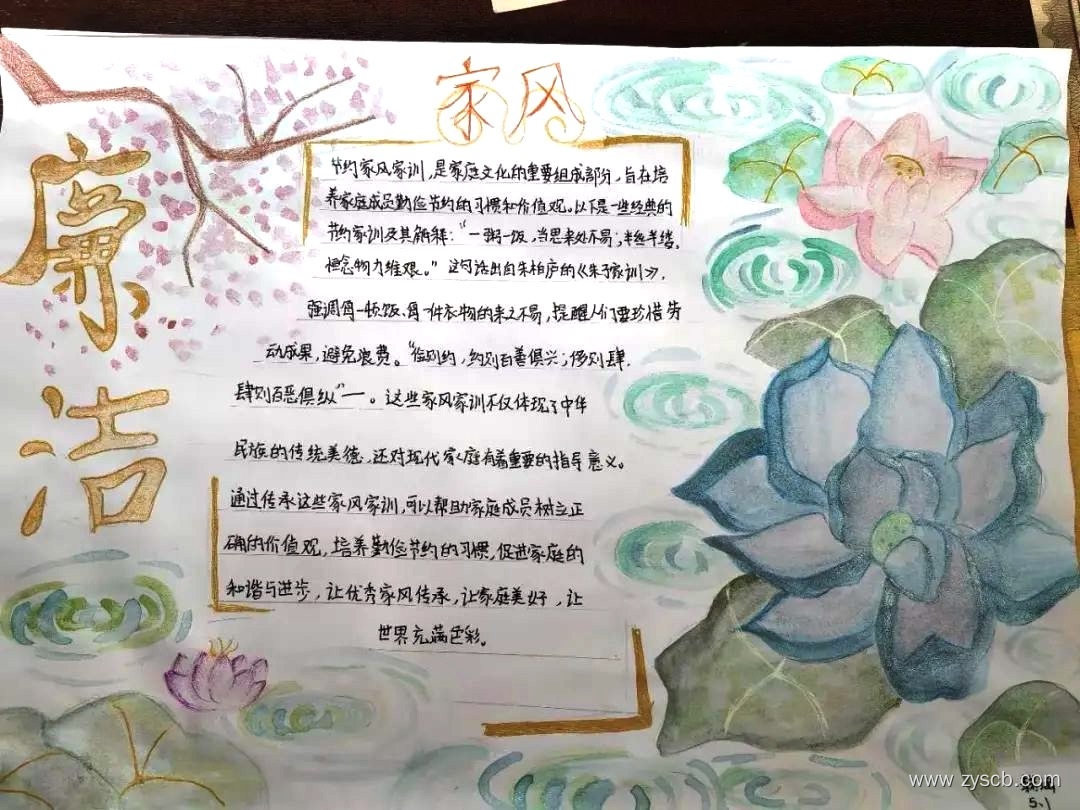 家风
廉洁
节约家风家训,是家庭文化的重要组成部分,旨在培
养家庭成员勤俭节约的习惯和价值观。以下是一些经典的
节约家训及其解释:“一粥一饭,当思来处不易;半丝半缕,
恒念物力维艰。”这句话出自朱柏庐的《朱子家训》,
强调每一顿饭、每一件衣物的来之不易,提醒人们要珍惜劳
动成果,避免浪费。“俭则约,约则百善俱兴;侈则肆,
肆则百恶俱纵”一。这些家风家训不仅体现了中华
民族的传统美德,还对现代家庭有着重要的指导意义。
通过传承这些家风家训,可以帮助家庭成员树立正
确的价值观,培养勤俭节约的习惯,促进家庭的
和谐与进步,让优秀家风传承,让家庭美好,让
世界充满色彩。
www.zyscb.com
5.1